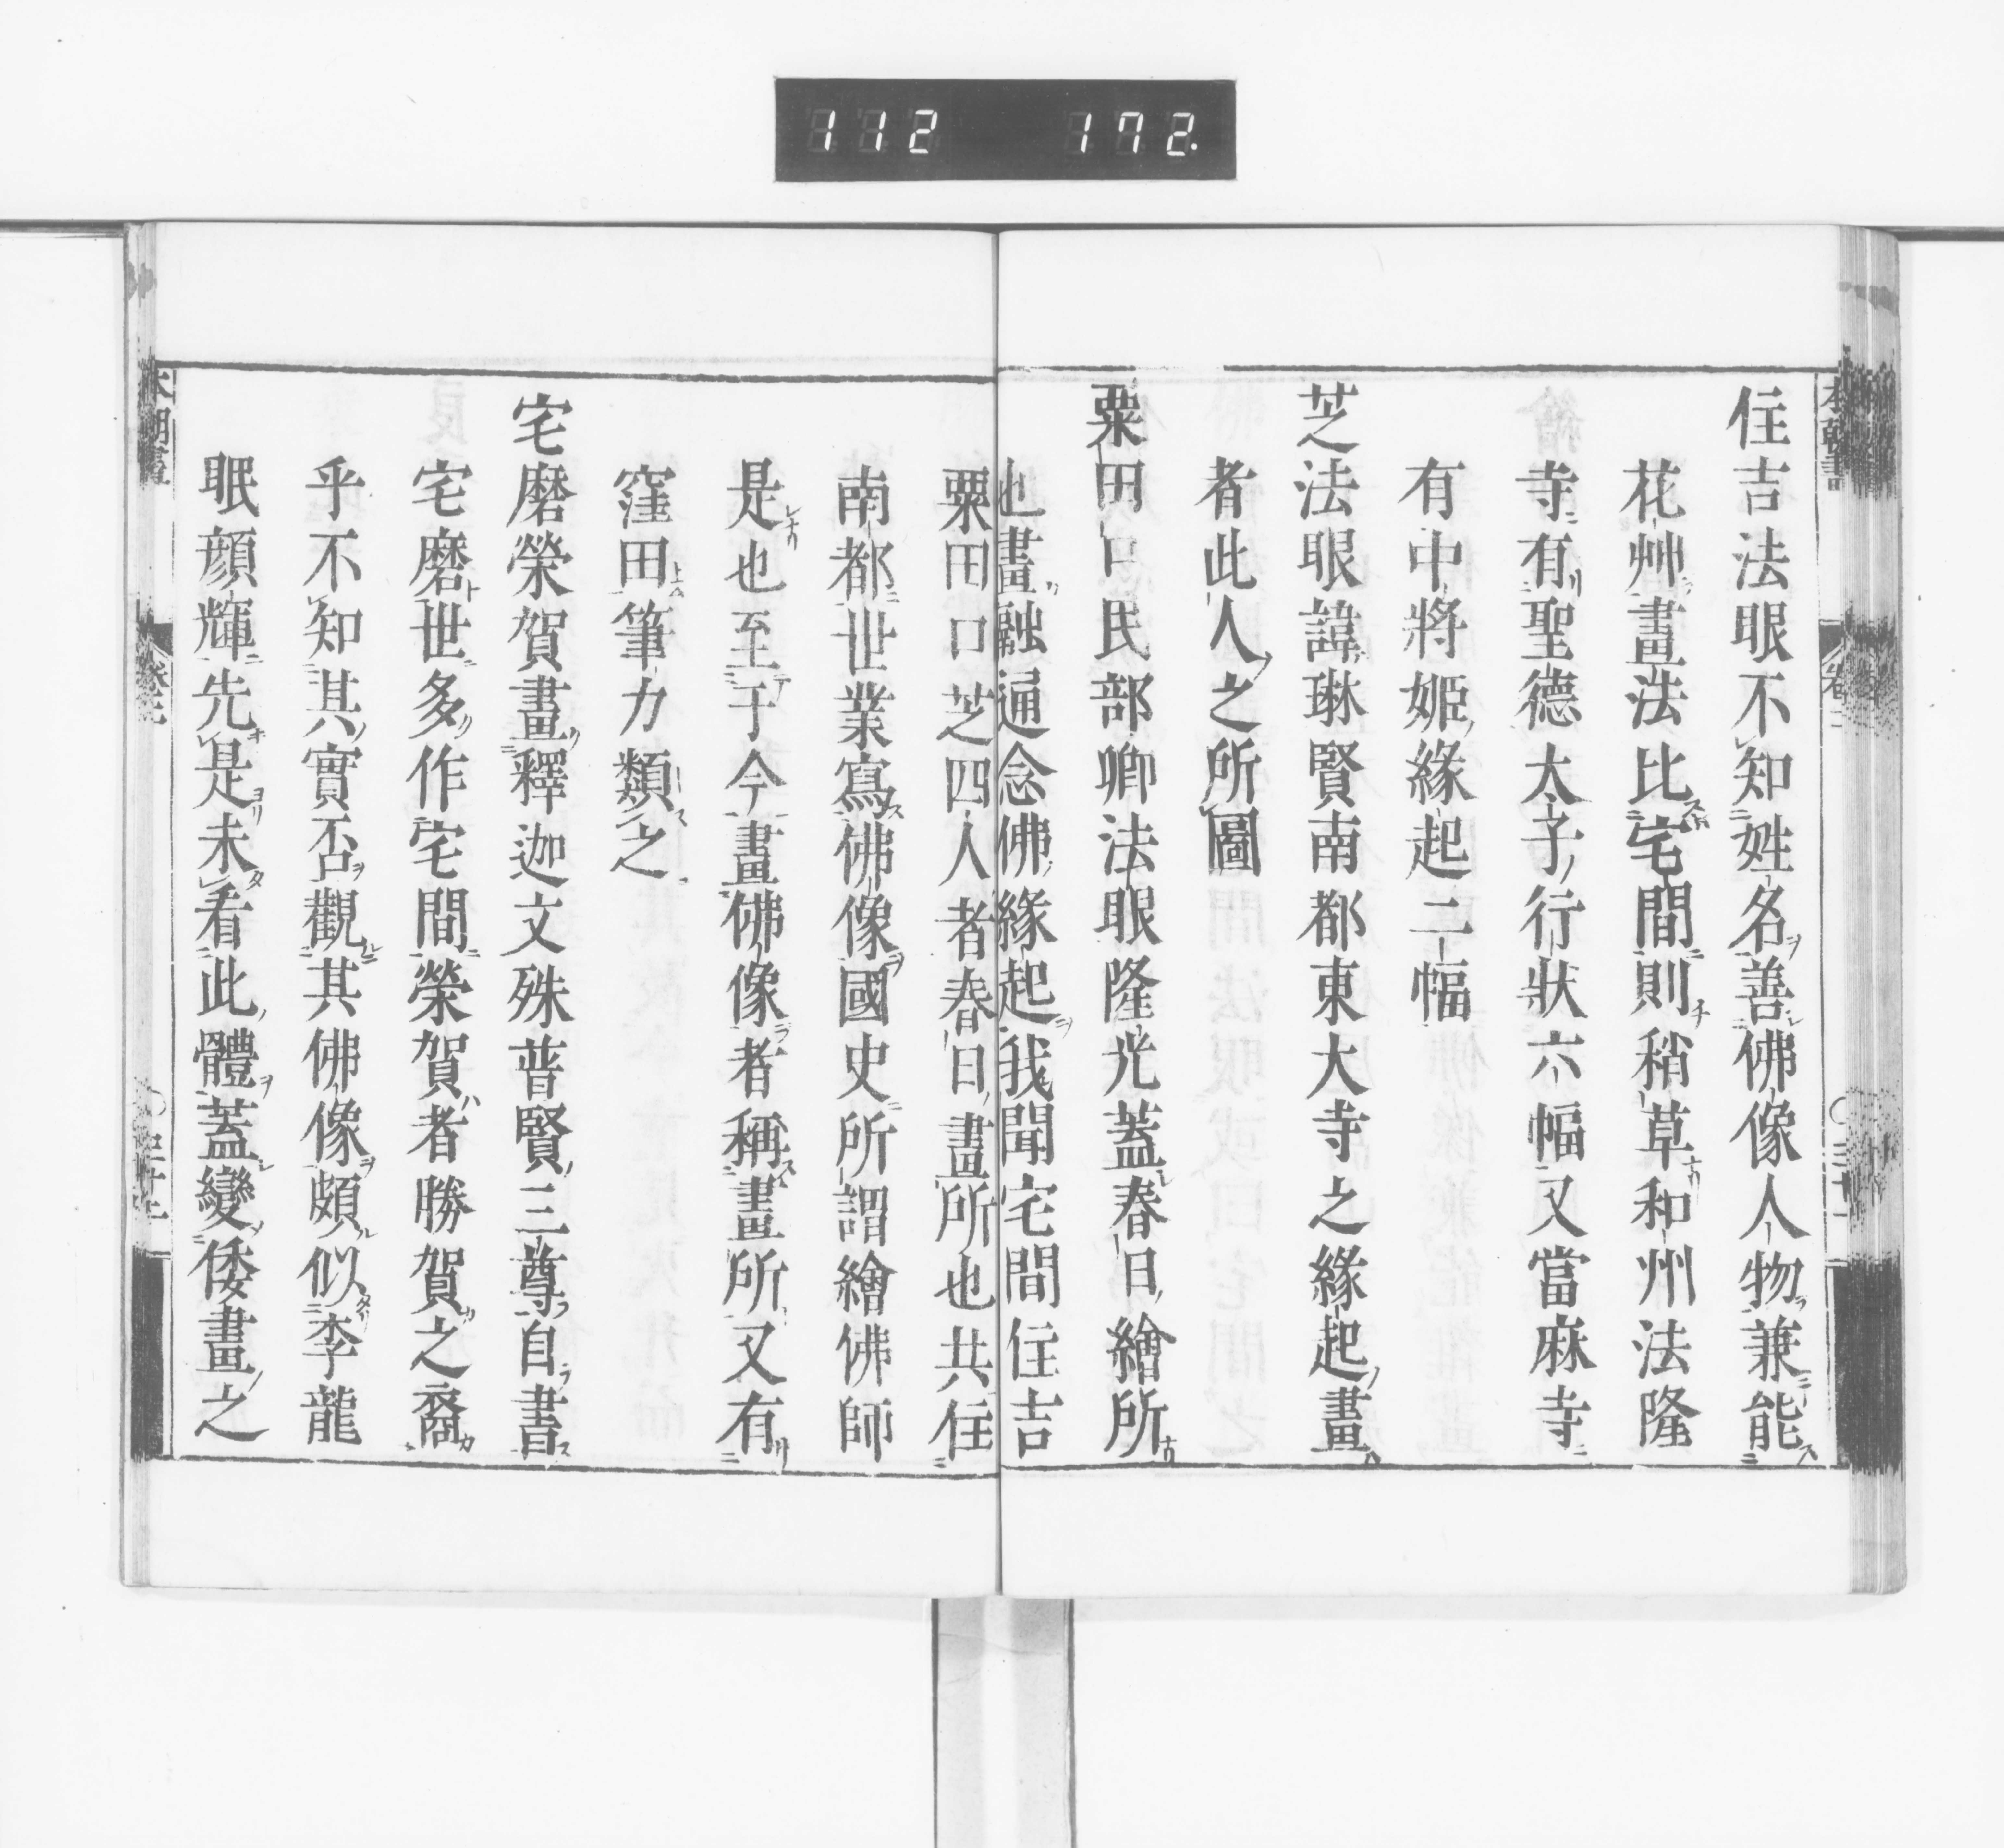 112 172.
住吉法眼不知姓名善佛像人物兼能
花艸畫法比宅間則稍草和州法隆
寺有聖德太子行狀六幅又當麻寺
有中將姬緣起二幅
芝法眼諱琳賢南都東大寺之緣起畫
者此人之所圖
粟田口民部卿法眼隆光蓋春日繪所
也畫融通念佛緣起我聞宅間住吉
粟田口芝四人者春日畫所也共住
南都世業寫佛像國史所謂繪佛師
是也至于今畫佛像者稱畫所又有
窪田筆力類之
宅磨榮賀畫釋迦文殊普賢三尊自書
宅磨世多作宅間榮賀者勝賀之裔
乎不知其實否觀其佛像頗似李龍
眠顏輝先是未看此體蓋變倭畫之